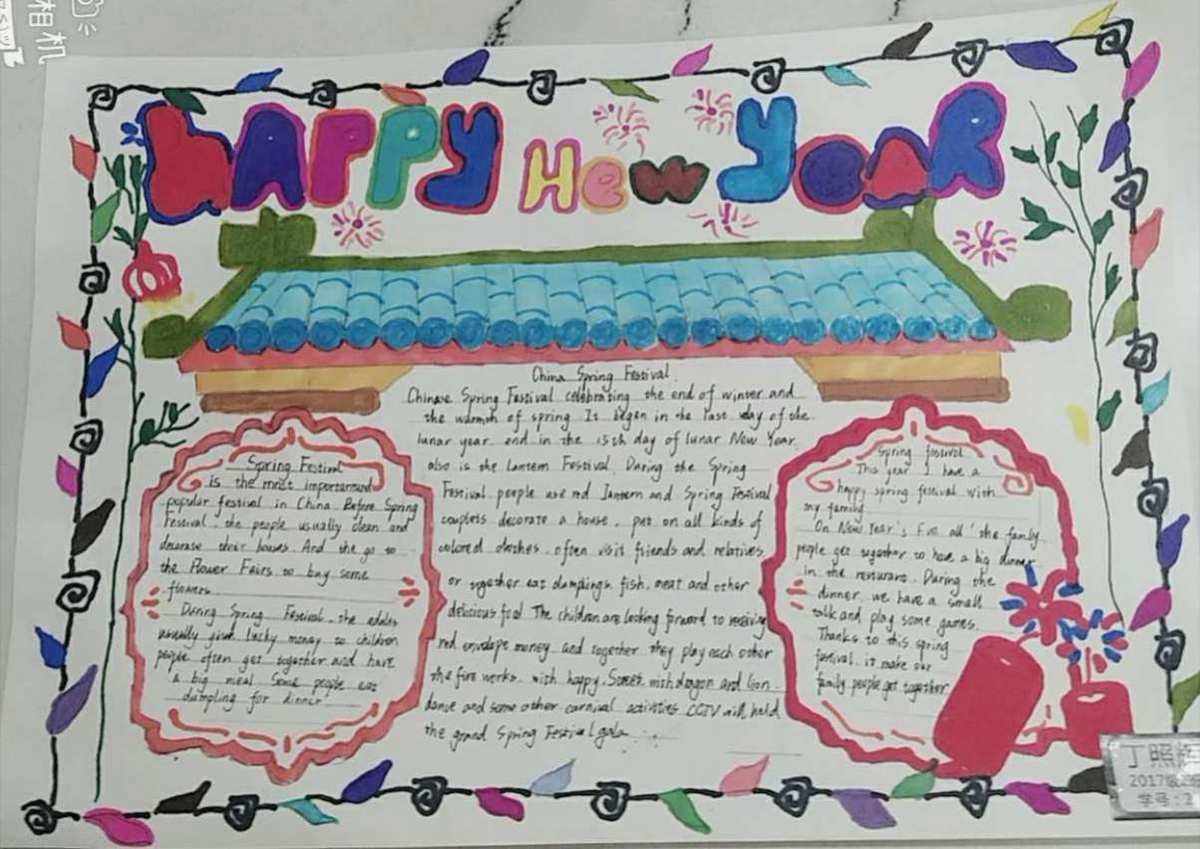 相机
HAPPY New YEAR
China Spring Festival
Chinese Spring Festival celebrating the end of winter and
the warmth of spring. It began in the last day of the
lunar year. end in the 15th day of lunar New Year
also is the Lantern Festival. During the Spring
Festival, people use red lantern and Spring Festival
couplets decorate a house, put on all kinds of
colored clothes, often visit friends and relatives
or together eat dumplings, fish, meat and other
delicious food. The children are looking forward to receiving
red envelope money, and together they play each other
the fire works, with happy. Street with dragon and lion
dance and some other carnival activities CCTV will held
the grand Spring Festival gala
Spring Festival
is the most
popular festival in China. Before Spring
Festival, the people usually clean and
decorate their houses. And the go to
the Flower Fairs to buy some
flowers
During Spring Festival, the adults
usually give lucky money to children
people often get together and have
a big meal Some people eat
dumpling for dinner
Spring festival
This year I have a
happy spring festival with
my family
On New Year's Eve all the family
people get together to have a big dinner
in the During the
dinner, we have a small
talk and play some games.
Thanks to this spring
festival, it make our
family people get together
丁照
2017级2
学号:2